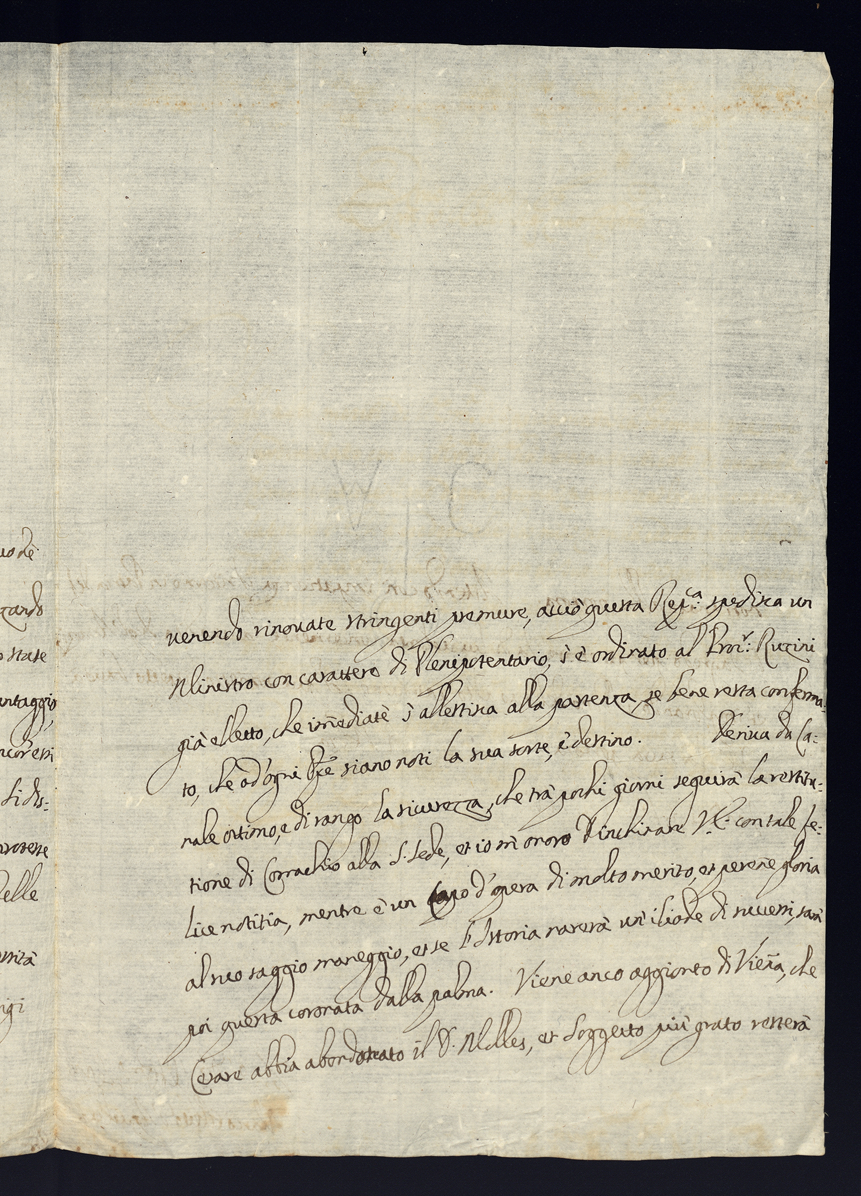 uo dè
zando
o state
antaggio
ncoressi
li ds:
protesse
delle
ursità
ngi
venendo rinovate stringenti premure, acciò questa Rep.ca spedisca un
Ministro con carattere di Plenipotentario, s'è ordinato al Pro.r: Ruzini
già elletto, che imediatè s'allestisca alla partenza, se bene resta conferma-
to, che ad'ogni Pñe siano noti la sua sorte, e destino. Deriva da Ca-
nale ottimo, e di rango la sicurezza, che trà pochi giorni seguirà la restitu-
tione di Comachio alla S. Sede, et io m'onoro d'inchinare V.E. con tale fe-
lice notitia, mentre è un Capo d'opera di molto merito, et perene gloria
al suo saggio maneggio, et se l'Istoria narerà un'iliade di successi, sarà
poi questa coronata dalla palma. Viene anco aggionto di Viena, che
Cesare abbia abordonato il D. Molles, et Soggetto più grato resterà